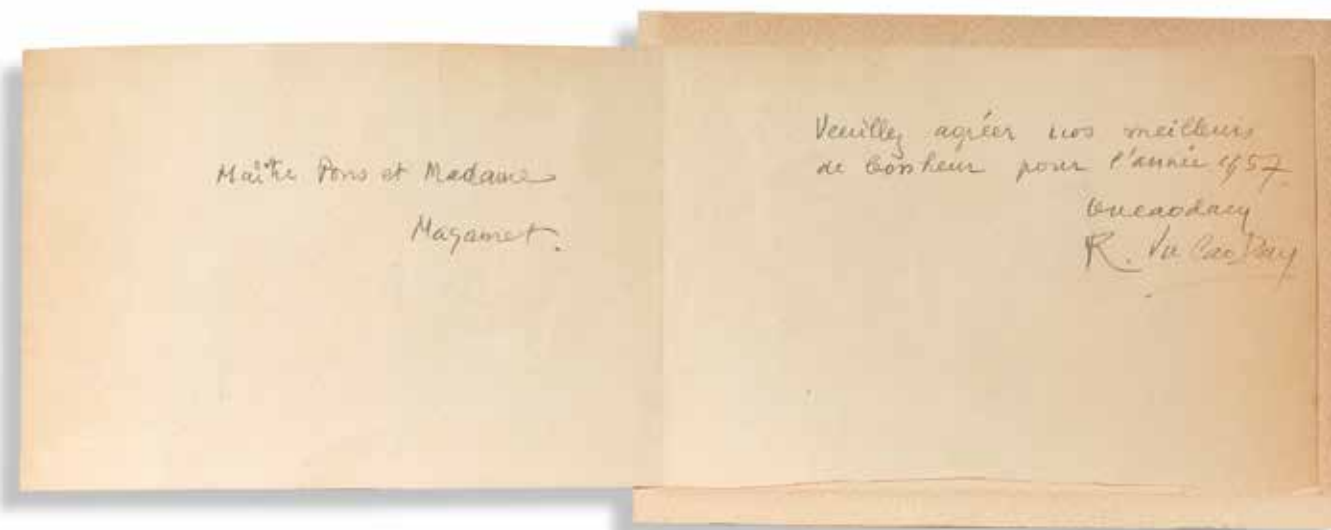 Maître Pons et Madame
Magamet.
Veuillez agréer nos meilleurs
de bonheur pour l'année 1957.
Vucaodam
R. Vu Cao Dam